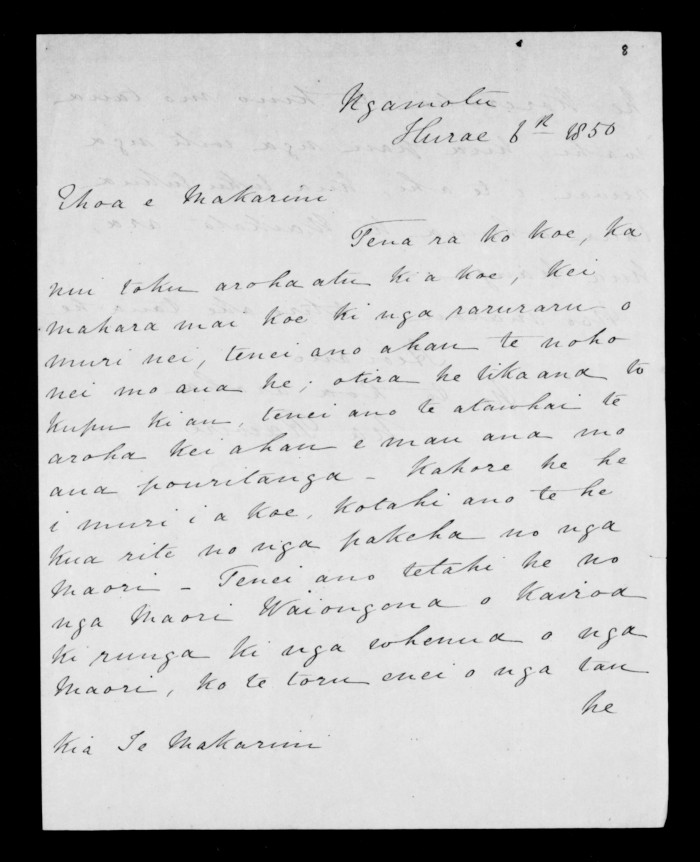 8
Ngamotu
Hurae 6th 1850
Ehoa e Makarini
Tena ra ko koe, ka
nui toku aroha atu ki a koe, kei
mahara mai koe ki nga raruraru o
muri nei, tenei ano ahau te noho
nei mo ana he; otira he tika ana to
kupu ki au tenei ano te atawhai te
aroha kei ahau e mau ana mo
ana pouritanga - Kahore he he
i muri i a koe, kotahi ano te he
kua rite no nga pakeha no nga
Maori - Tenei ano tetahi he no
nga Maori Waiongona o Kairoa
ki runga ki nga whenua o nga
Maori, ko te toru enei o nga tau
he
Kia Te Makarini